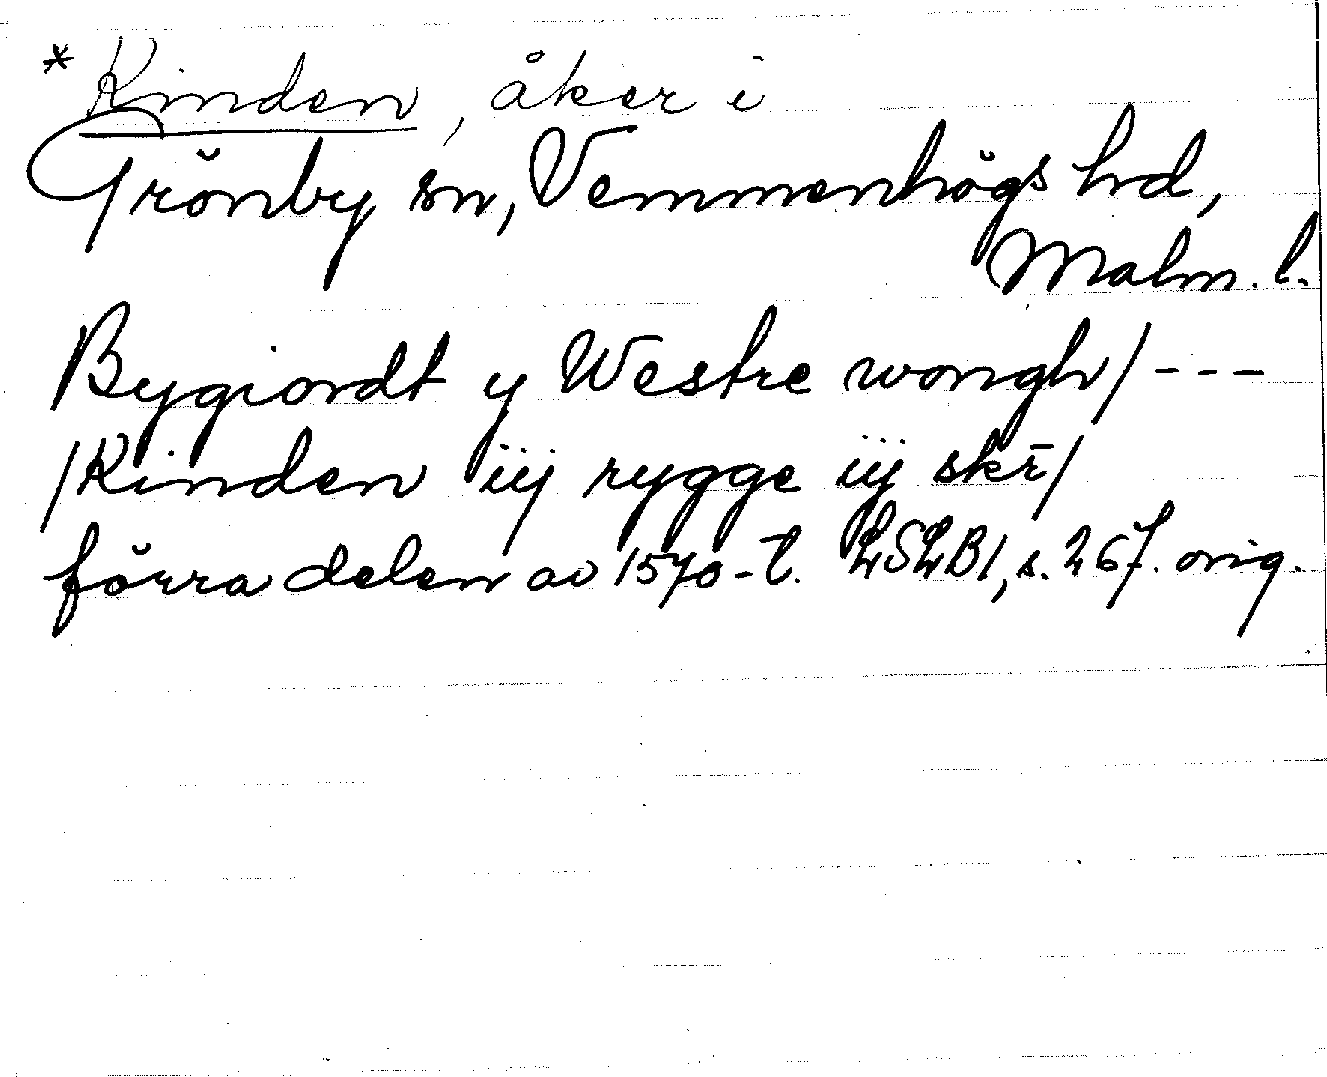 *Kinden, åker i
Grönby sn, Vemmenhögs hd,
Malm. l.
Bygiordt y Westre wongh/---
/Kinden iij rygge iij skr̄/
förra delen av 1570-t. LSLB1, s. 267. orig.